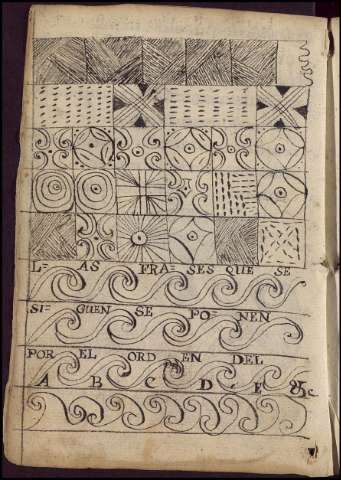 L= AS FRA= SES QUE SE
SI= GUEN SE PO= NEN
POR EL ORD EN DEL
A B C D E &c